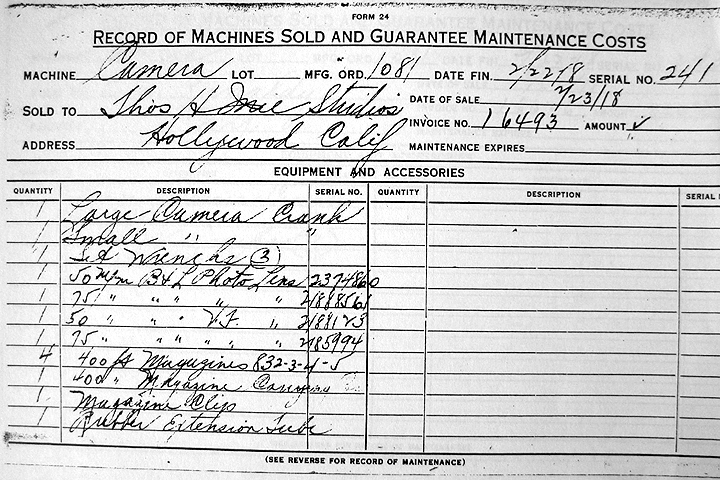 FORM 24
RECORD OF MACHINES SOLD AND GUARANTEE MAINTENANCE COSTS
MACHINE Camera LOT MFG. ORD. 1081 DATE FIN. 2/22/8 SERIAL NO. 241
SOLD TO Thos H Ince Studios DATE OF SALE 2/23/18
INVOICE NO. 16493 AMOUNT ✓
ADDRESS Hollywood Calif MAINTENANCE EXPIRES
EQUIPMENT AND ACCESSORIES
QUANTITY DESCRIPTION SERIAL NO. QUANTITY DESCRIPTION SERIAL N
1 Large Camera Crank
1 Small " "
1 Set Wrenchs (3)
1 50 m/m B & L Photo Lens 2374860
1 75 " " " " "
1 50 " " " V.F. " 2188123
1 75 " " " " " 2185994
4 400 ft Magazines 832-3-4-5
1 400 " Magazine Case
1 Magazine Clip
1 Rubber Extension Tube
(SEE REVERSE FOR RECORD OF MAINTENANCE)